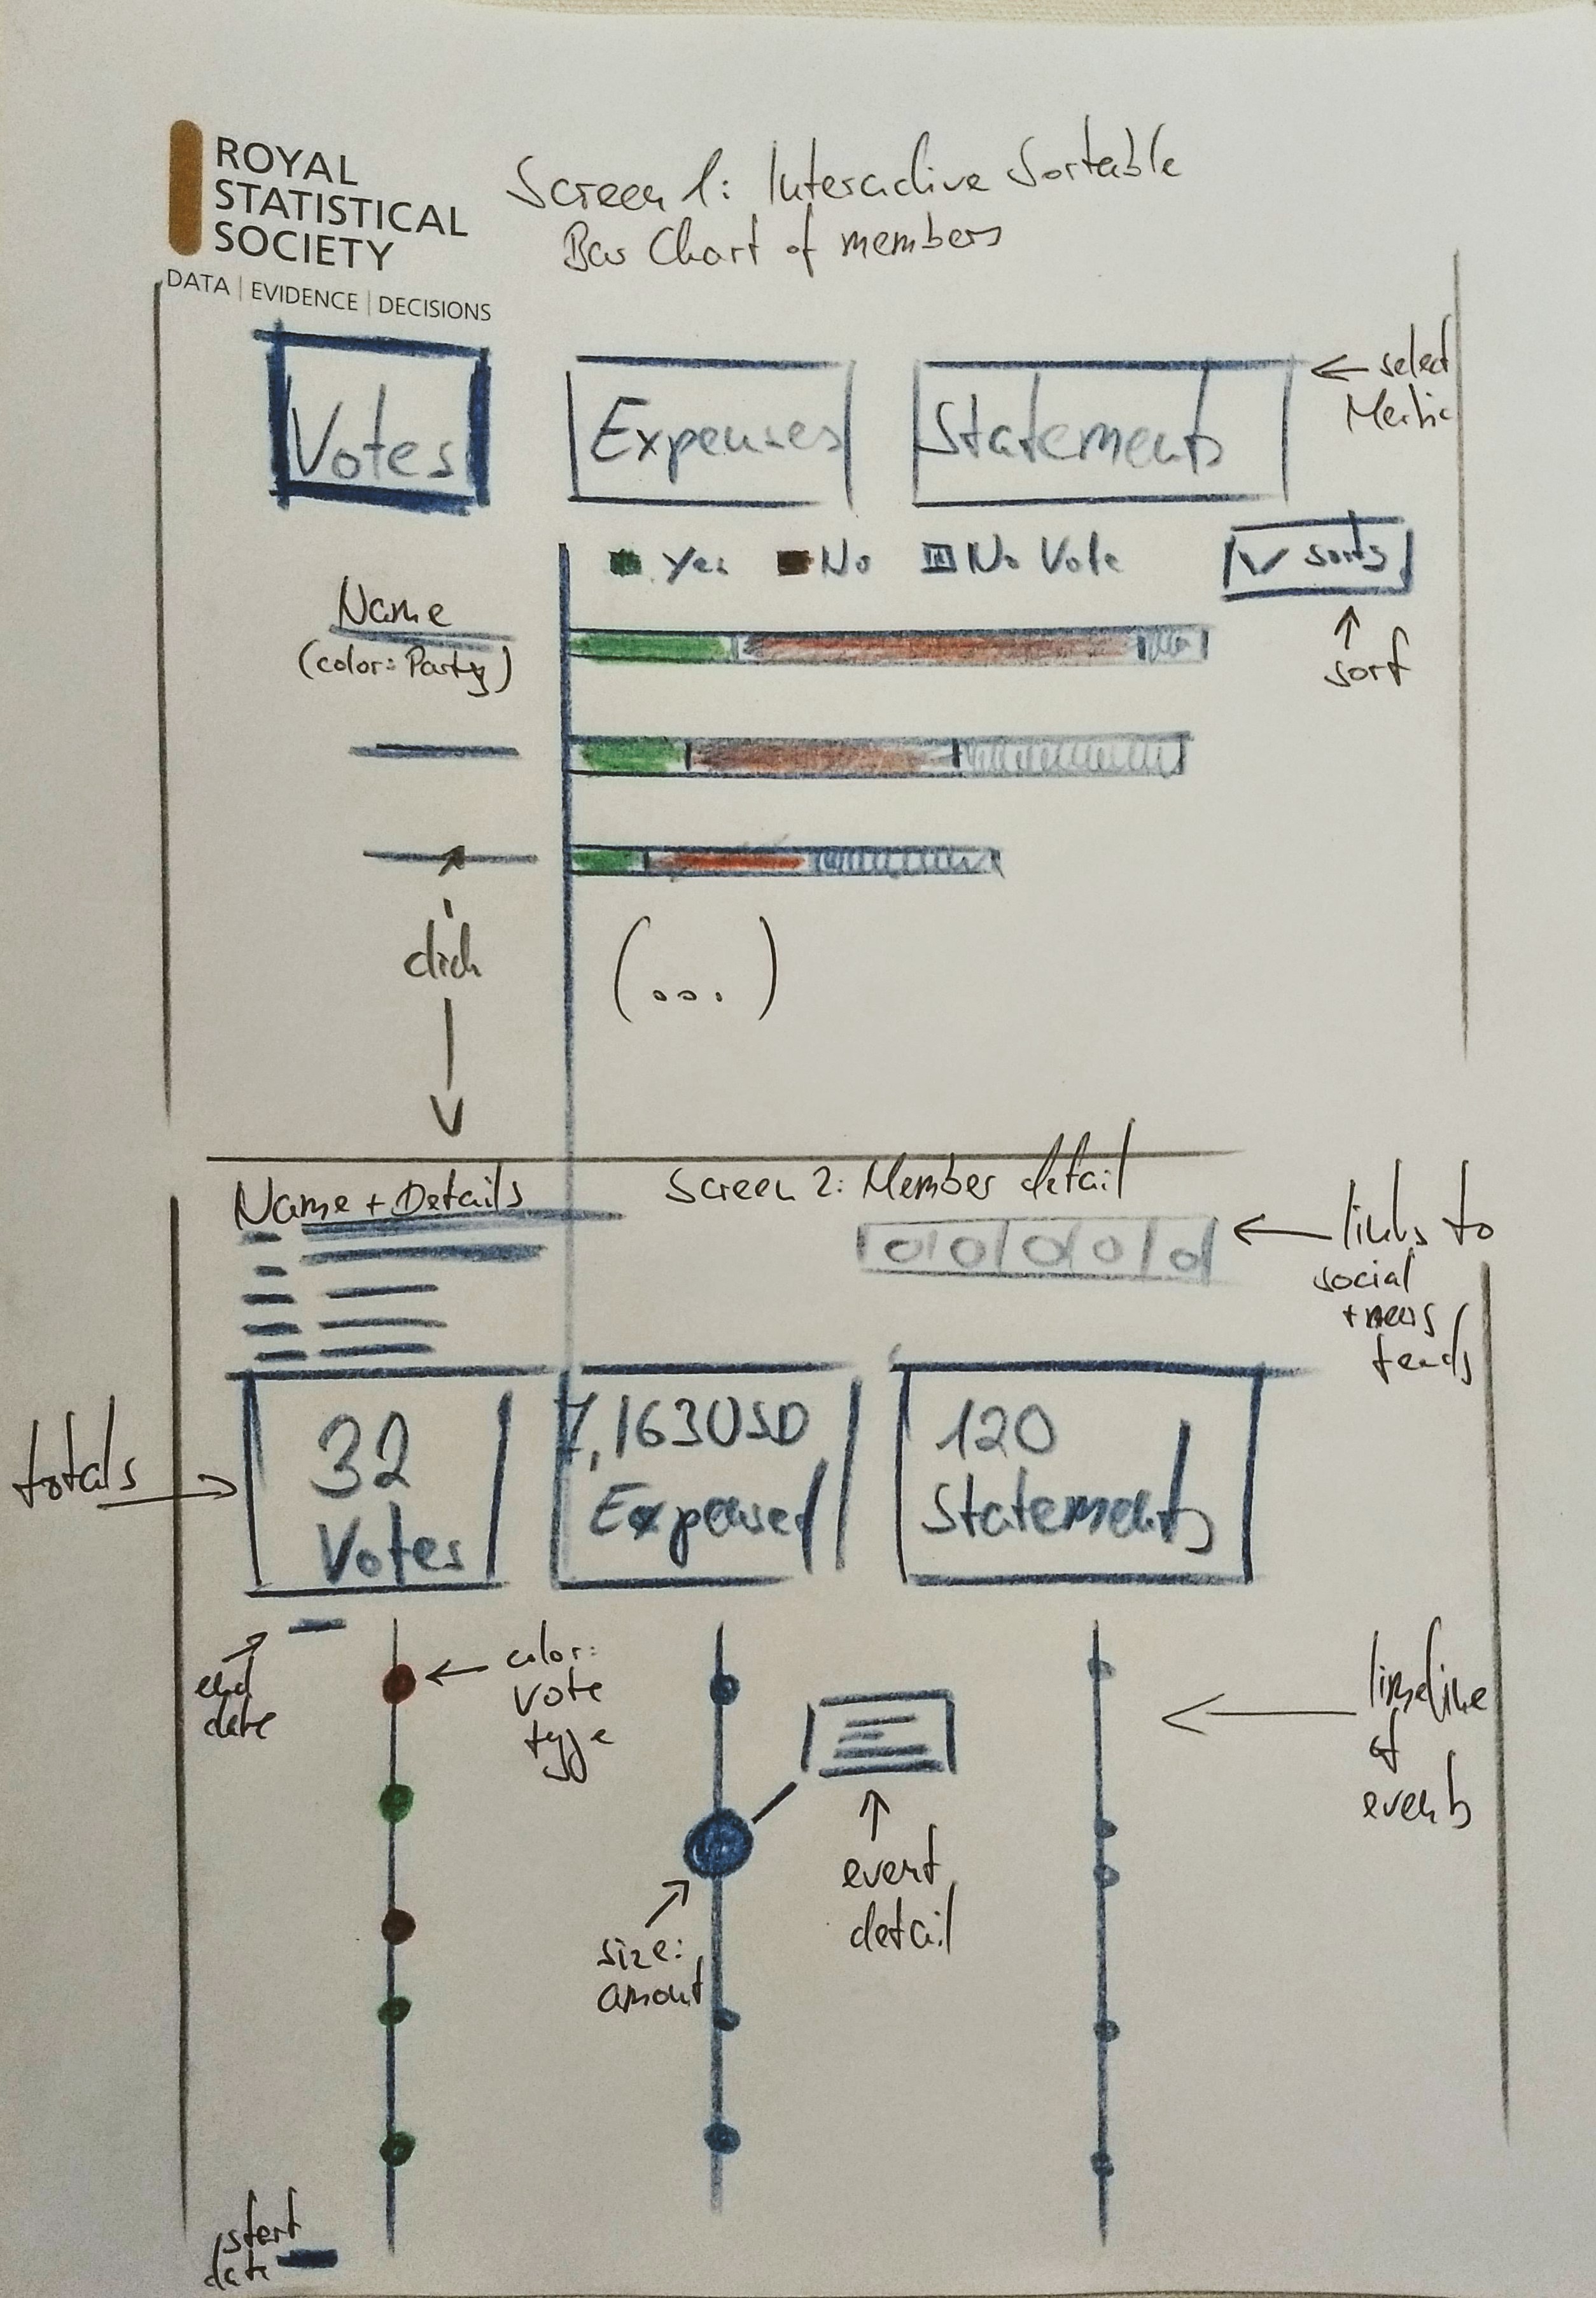 ROYAL
STATISTICAL
SOCIETY
DATA | EVIDENCE | DECISIONS
Screen 1: Interactive Sortable
Bar Chart of members
Votes
Expenses
Statements
← select
Metric
Yes No No Vote
sort
Name
(color: Party)
sort
click
(...)
Screen 2: Member detail
Name + Details
links to
social
+ news
feeds
totals
32
Votes
7,163 USD
Expensed
120
Statements
end
date
color:
vote
type
size:
amount
event
detail
timeline
of
events
start
date